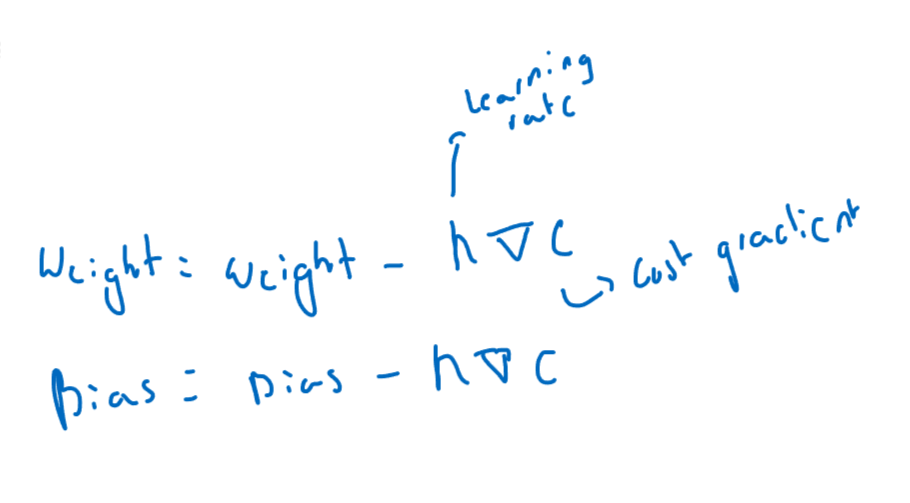 Learning
rate
Weight = weight - h∇C
cost gradient
Bias = Bias - h∇C